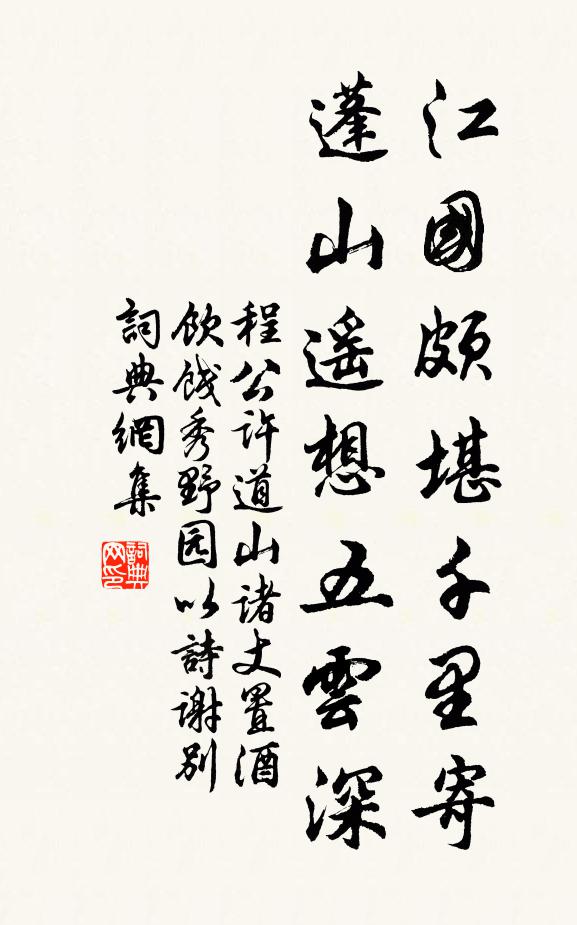 江國頗堪千里寄
蓬山遥想五雲深
程公許道山諸丈置酒
飲餞秀野园以詩谢别
詞典網集
詞典网印